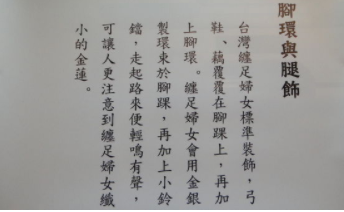 腳環與腿飾
台灣纏足婦女標準裝飾，弓
鞋、藕覆覆在腳踝上，再加
上腳環。纏足婦女會用金銀
製環束於腳踝，再加上小鈴
鐺，走起路來便輕鳴有聲，
可讓人更注意到纏足婦女纖
小的金蓮。